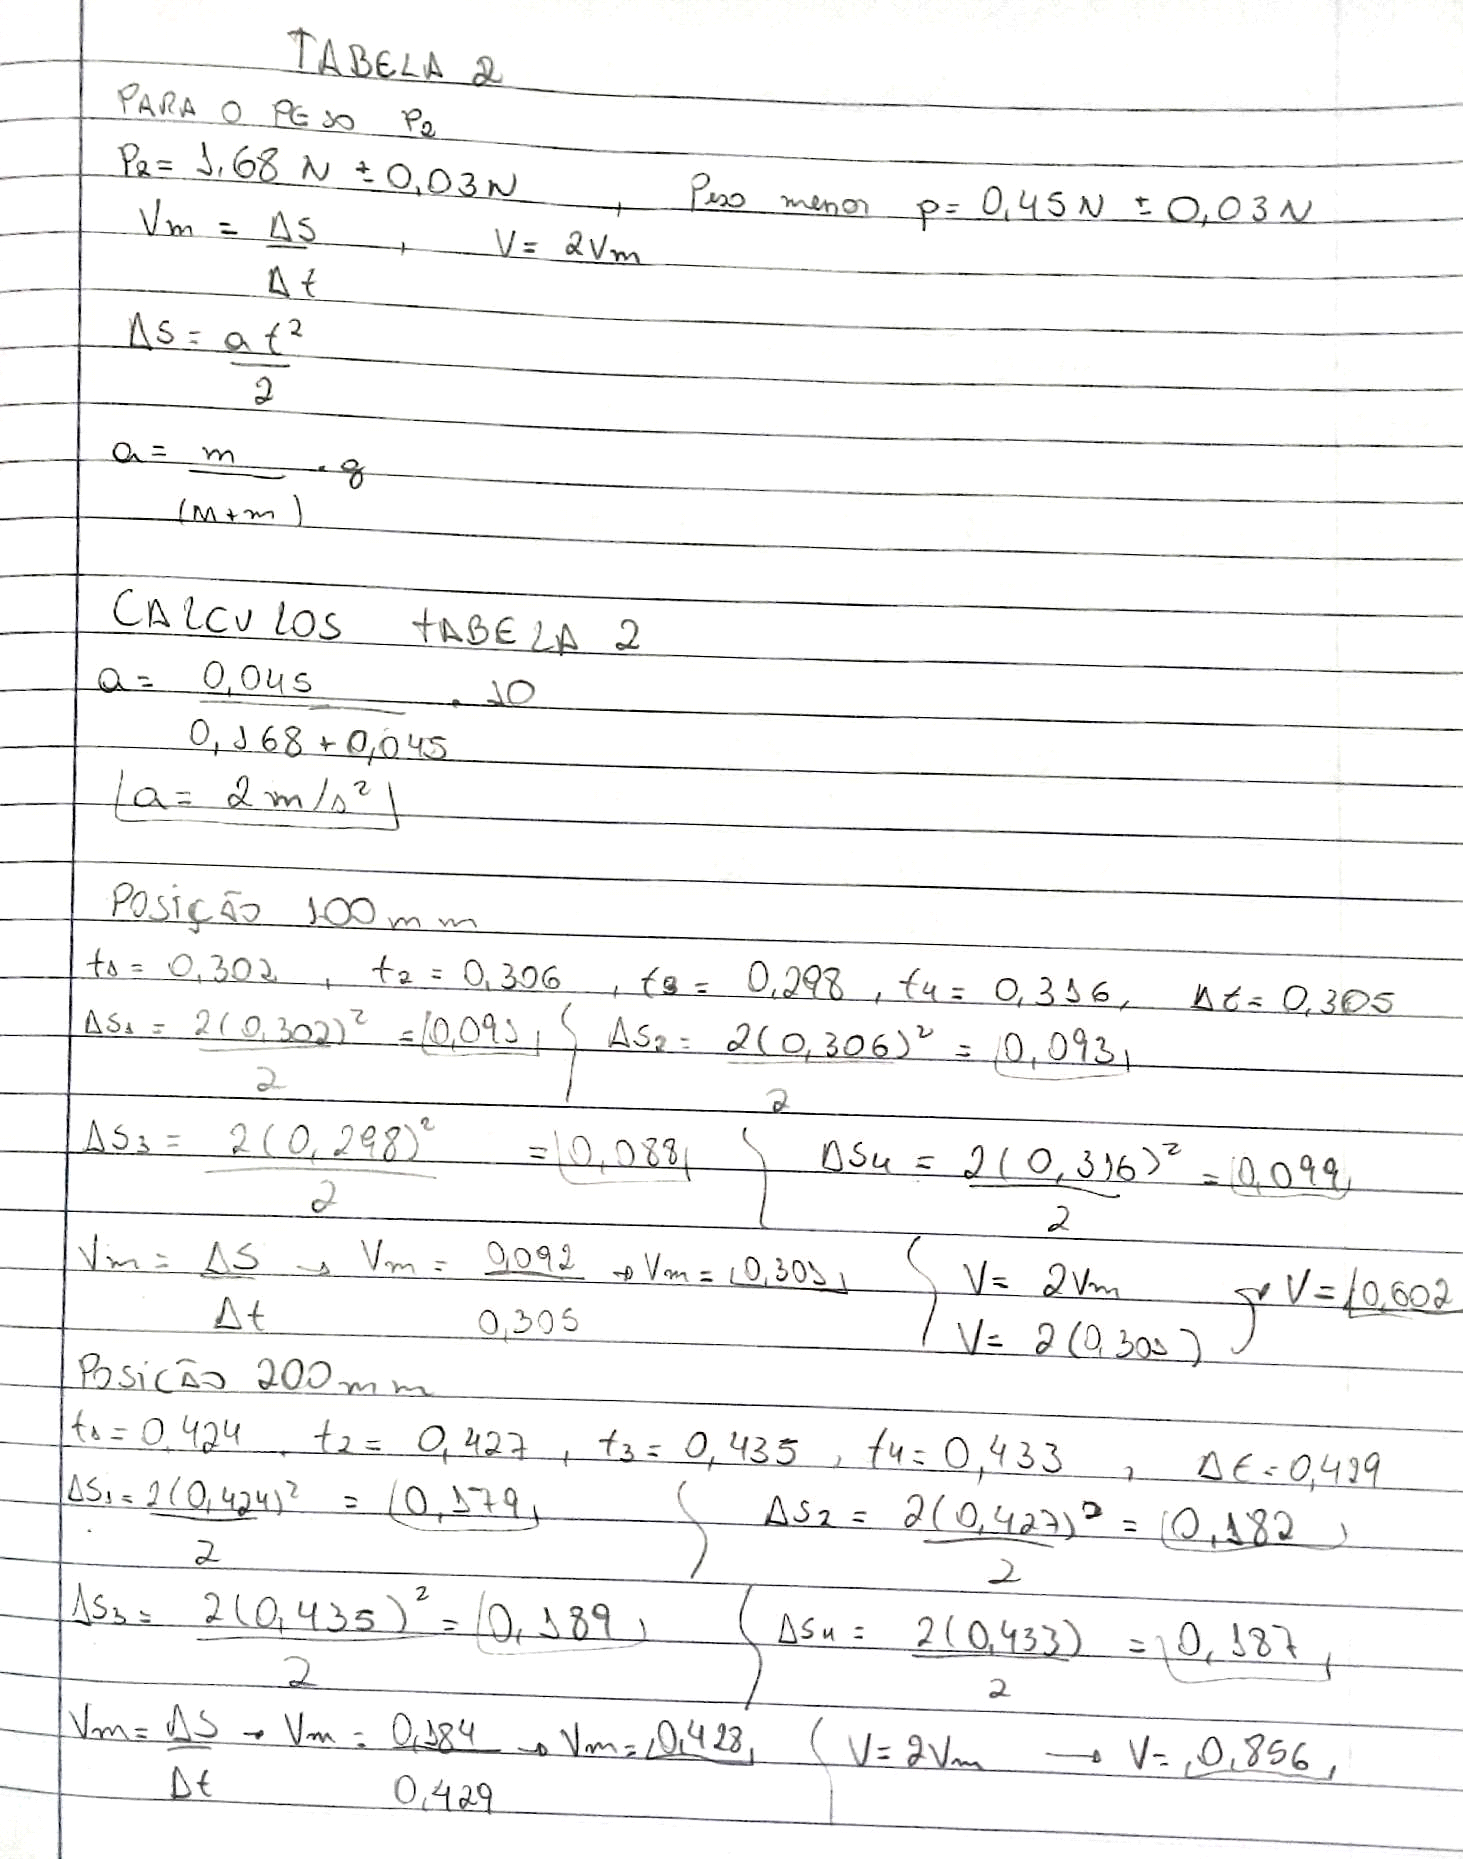 TABELA 2
PARA O PESO P2
P2= 1,68 N ± 0,03N , Peso menor p= 0,45N ± 0,03N
Vm = ΔS/Δt , V= 2Vm
ΔS = at²/2
a= m/(M+m) . g
CALCULOS TABELA 2
a= 0,045/0,168+0,045 . 10
a= 2m/s²
Posição 100mm
t1= 0,302 , t2= 0,306 , t3= 0,298 , t4= 0,316, Δt= 0,305
ΔS1 = 2(0,302)²/2 = 0,091 } ΔS2= 2(0,306)²/2 = 0,093
ΔS3 = 2(0,298)²/2 = 0,088 } ΔS4 = 2(0,316)²/2 = 0,099
Vm= ΔS/Δt → Vm= 0,092/0,305 → Vm= 0,301 { V= 2Vm
V= 2(0,301) } → V= 0,602
Posição 200mm
t1= 0,424 , t2= 0,427 , t3= 0,435 , t4= 0,433 , Δt= 0,429
ΔS1= 2(0,424)²/2 = 0,179 { ΔS2 = 2(0,427)²/2 = 0,182
ΔS3= 2(0,435)²/2 = 0,189 { ΔS4= 2(0,433)/2 = 0,187
Vm= ΔS/Δt → Vm= 0,184/0,429 → Vm= 0,428 { V= 2Vm → V= 0,856